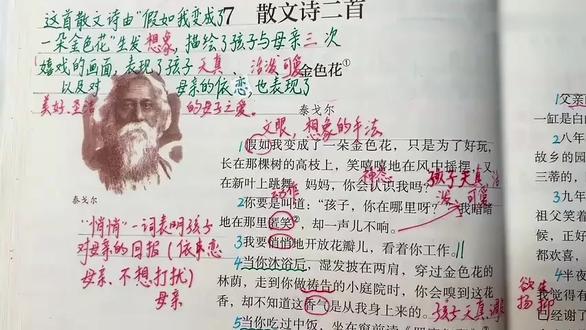 这首散文诗由"假如我变成了
7 散文诗二首
一朵金色花"生发想象,描绘了孩子与母亲三次
嬉戏的画面,表现了孩子天真、活泼可爱
金色花①
以及对母亲的依恋,也表现了
美好、圣洁的母子之爱。
泰戈尔
文眼,想象的手法
1假如我变成了一朵金色花,只是为了好玩,
长在那棵树的高枝上,笑嘻嘻地在风中摇摆,又
神态
在新叶上跳舞,妈妈,你会认识我吗?
孩子天真活泼可爱
泰戈尔
动作
2你要是叫道:"孩子,你在哪里呀?"我暗暗
地在那里匿笑②,却一声儿不响。
"悄悄"一词表明孩子
对母亲的回报(依恋
母亲,不想打扰)
母亲
3我要悄悄地开放花瓣儿,看着你工作。
4当你沐浴后,湿发披在两肩,穿过金色花的
林荫,走到你做祷告的小庭院时,你会嗅到这花
香,却不知道这香气是从我身上来的。
孩子天真
5当你吃过中饭,坐在窗前读
1父亲
一缸是白
2八年
故乡的园
三蒂的,
3九年
祖父笑着
候,正好
都欢喜,
4半夜
我觉得有
已经谢了
欲扬先抑